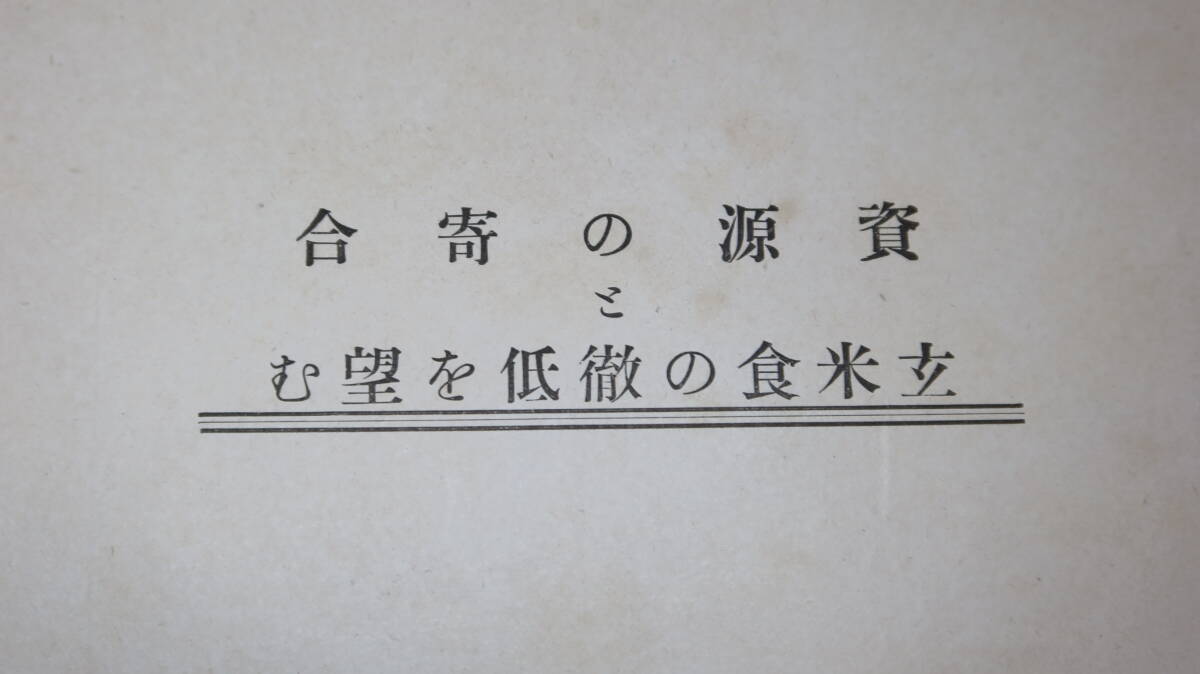 資源の寄合
と
玄米食の徹低を望む